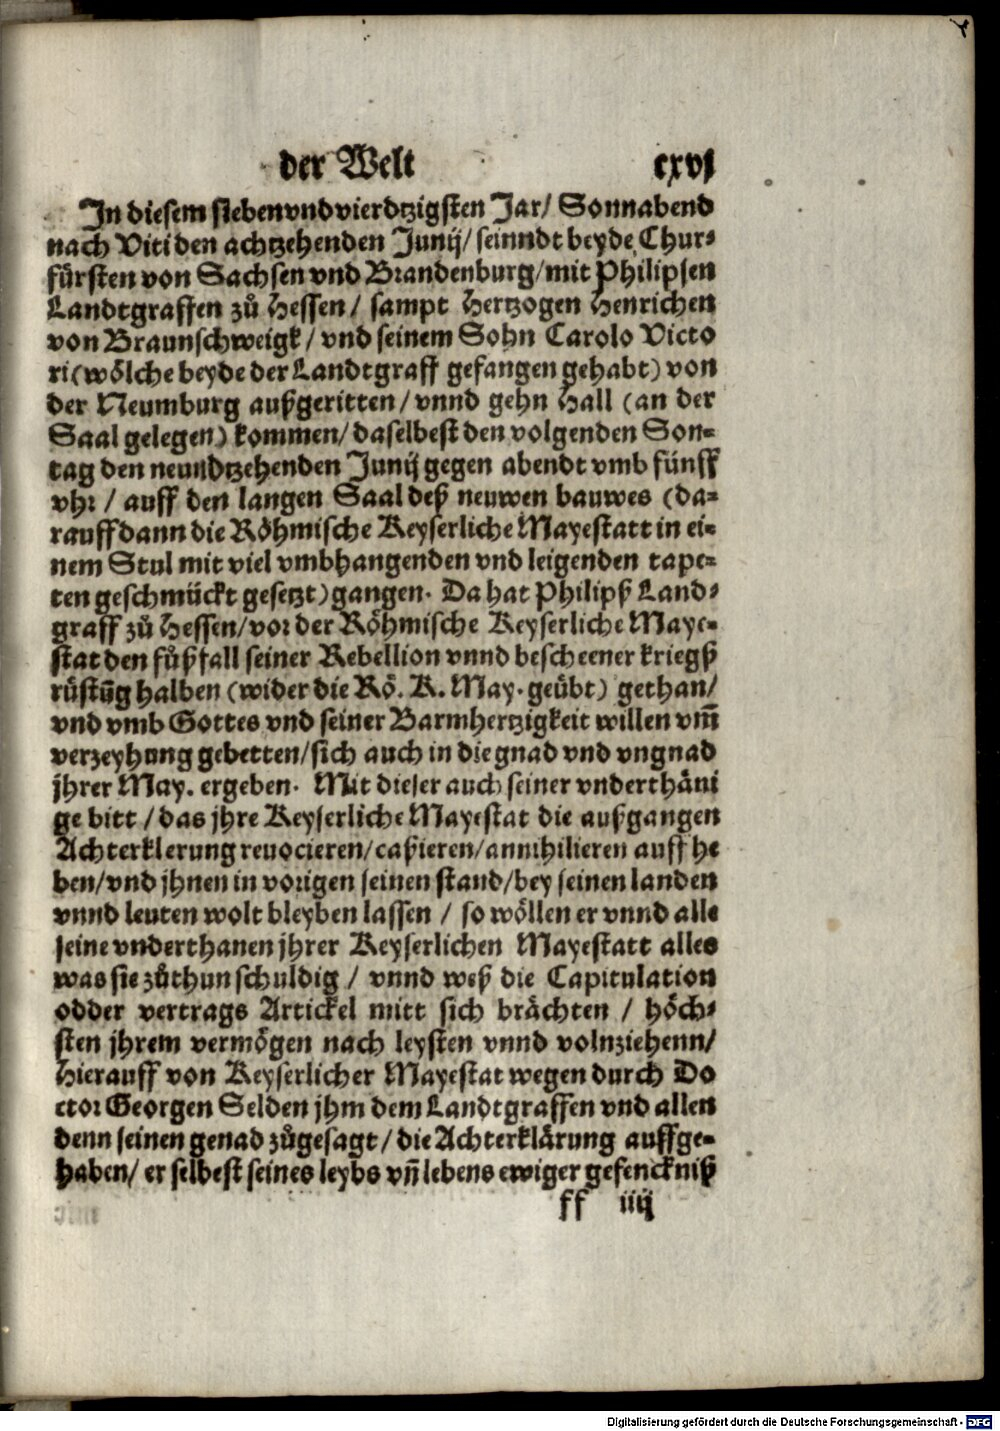 der Welt cxvj
In diesem siebenvndvierdtzigsten Jar/ Sonnabend
nach Viti den achtzehenden Junij/ seinndt beyde Chur⸗
fürsten von Sachsen vnd Brandenburg/mit Philipsen
Landtgraffen zů Hessen/ sampt Hertzogen Henrichen
von Braunschweigk/ vnd seinem Sohn Carolo Victo
ri(wölche beyde der Landtgraff gefangen gehabt) von
der Neumburg außgeritten/ vnnd gehn Hall (an der
Saal gelegen) kommen/ daselbest den volgenden Son⸗
tag den neundtzehenden Junij gegen abendt vmb fünff
vhr/ auff den langen Saal deß neuwen bauwes (da⸗
rauff dann die Röhmische Keyserliche Mayestatt in ei⸗
nem Stul mit viel vmbhangenden vnd leigenden tape⸗
ten geschmückt gesetzt)gangen. Da hat Philipß Land⸗
graff zů Hessen/vor der Röhmische Keyserliche Maye⸗
stat den fůßfall seiner Rebellion vnnd bescheener kriegß
rüstūg halben (wider die Rö. K. May. geübt) gethan/
vnd vmb Gottes vnd seiner Barmhertzigkeit willen vm̄
verzeyhung gebetten/sich auch in die gnad vnd vngnad
jhrer May. ergeben. Mit dieser auch seiner vnderthäni
ge bitt/das jhre Keyserliche Mayestat die außgangen
Achterklerung reuocieren/caßieren/annihilieren auff he
ben/vnd jhnen in vorigen seinen stand/bey seinen landen
vnnd leuten wolt bleyben lassen/ so wöllen er vnnd alle
seine vnderthanen jhrer Keyserlichen Mayestatt alles
was sie zůthun schuldig/ vnnd weß die Capitulation
odder vertrags Artickel mitt sich brächten/ höch⸗
sten jhrem vermögen nach leysten vnnd volnziehenn/
Hierauff von Keyserlicher Mayestat wegen durch Do
ctor Georgen Selden jhm dem Landtgraffen vnd allen
denn seinen genad zůgesagt/die Achterklärung auffge⸗
haben/ er selbest seines leybs vn̄ lebens ewiger gefenckniß
ff iiij
Digitalisierung gefördert durch die Deutsche Forschungsgemeinschaft - DFG